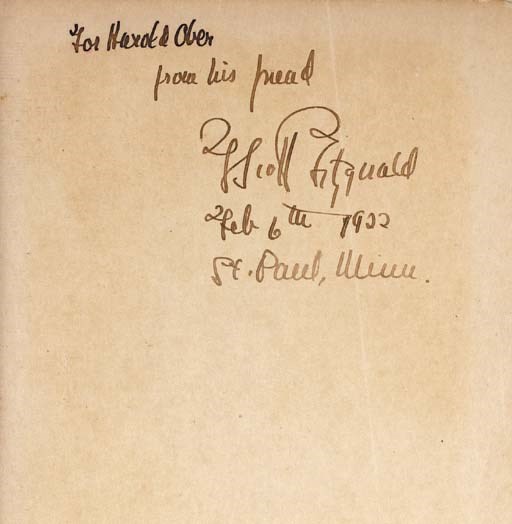 For Harold Ober
from his friend
F Scott Fitzgerald
Feb 6th 1922
St. Paul, Minn.